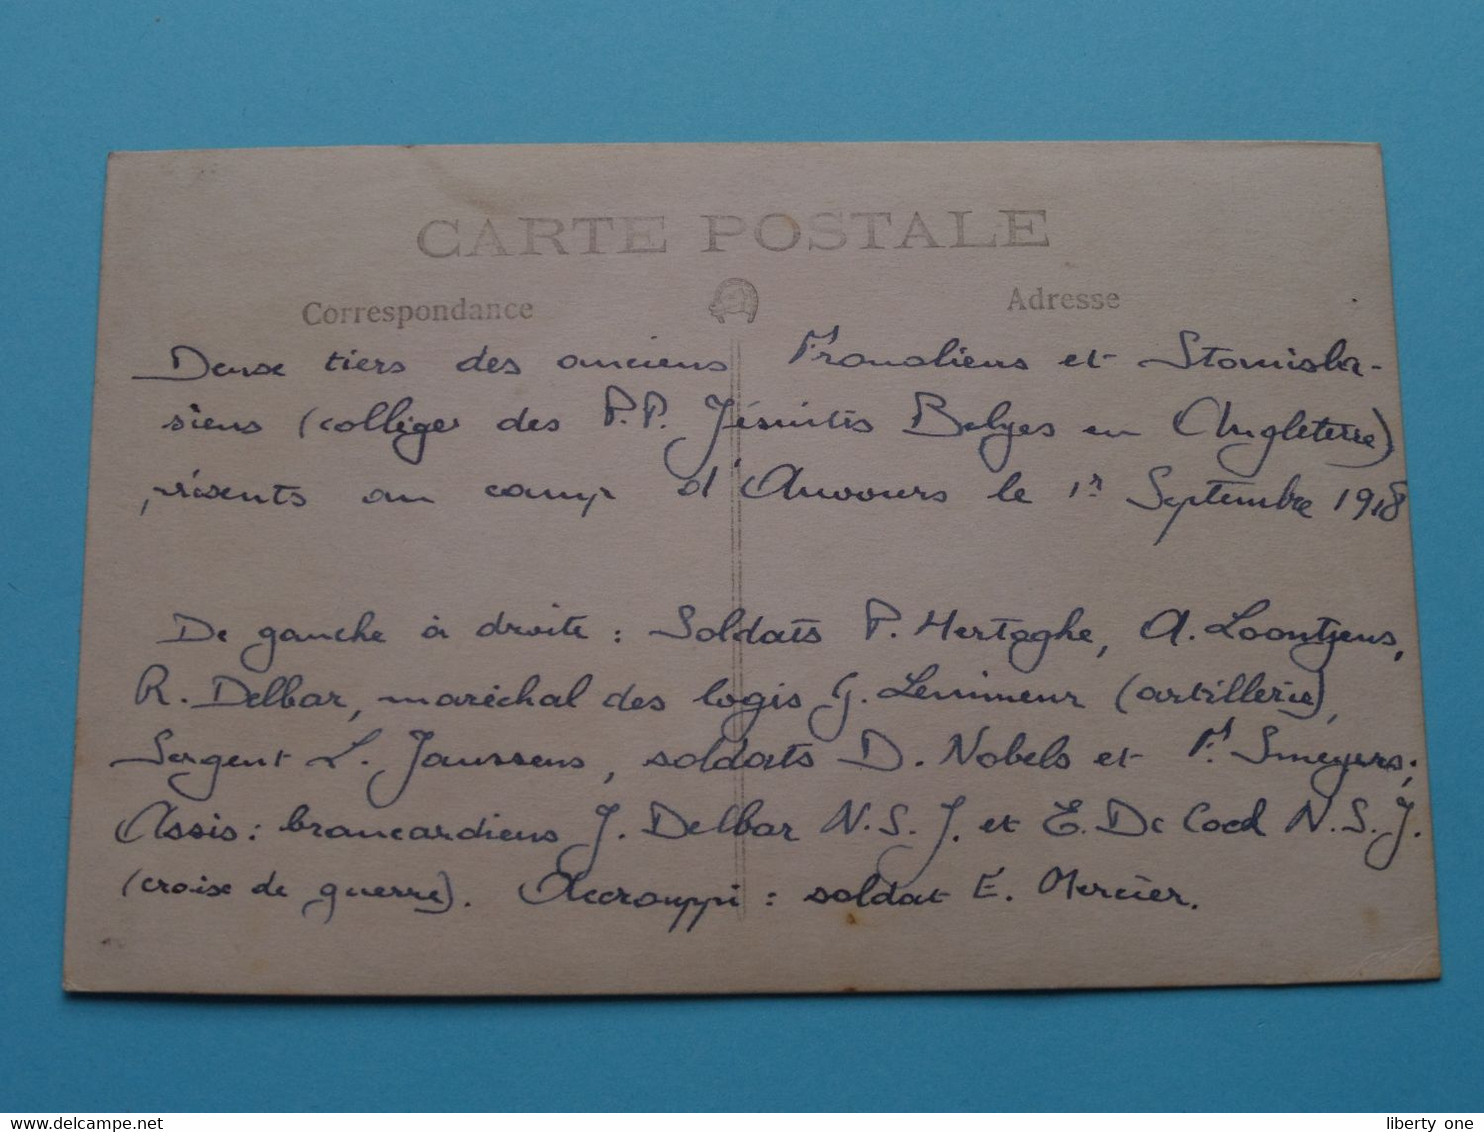 CARTE POSTALE
Correspondance
Adresse
Deux tiers des anciens et Stanisla-
siens (collèges des P.P. Jésuites Belges en Angleterre)
présents au camp d'Auvours le 1r Septembre 1918
De gauche à droite : Soldats P. Hertoghe, A. Loontjens,
R. Delbar, maréchal des logis G. (artillerie),
Sergent L. Janssens, soldats D. Nobels et F. Smeyers;
Assis : brancardiens J. Delbar N.S.J. et E. De Cock N.S.J.
(croix de guerre). Accroupi : soldat E. Mercier.
liberty one